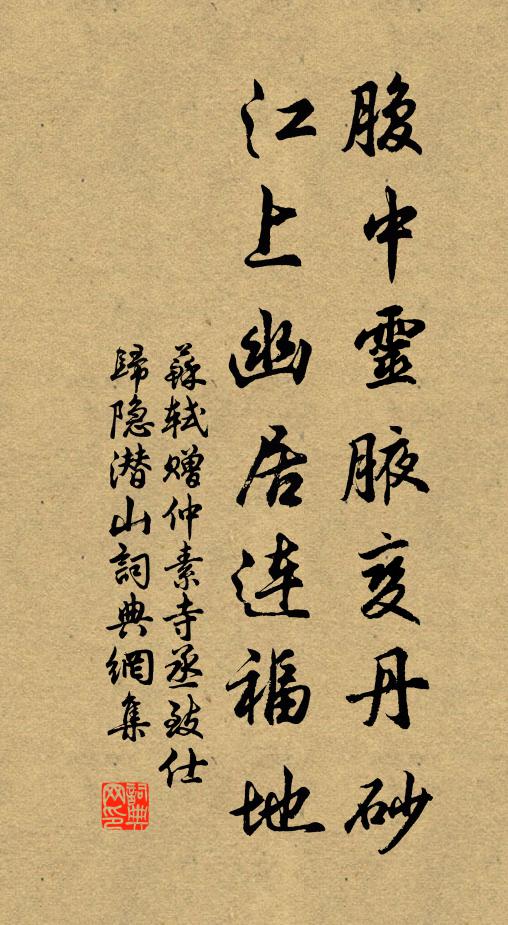 腹中靈腋变丹砂
江上幽居連福地
蘇軾赠仲素寺丞致仕
歸隐潜山詞典網集
詞典
网印